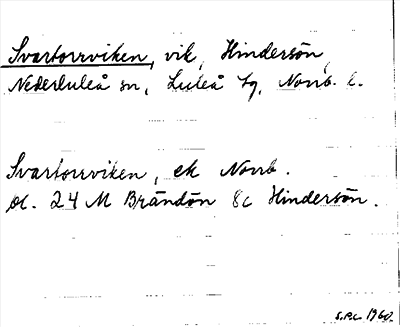 Svartorrviken, vik, Hindersön,
Nederluleå sn, Luleå tg, Norrb. l.
Svartorrviken, ek Norrb.
bl. 24 M Brändön 8c Hindersön.
S.P.L. 1960.